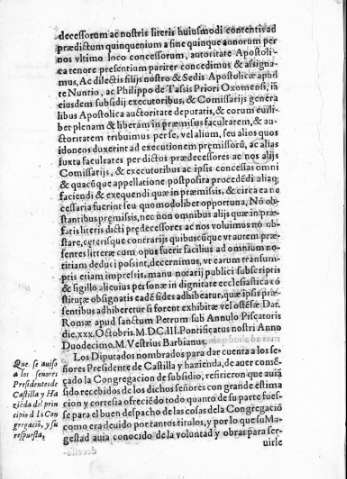 decessorum ac nostris literis huiusmodi contentis ad
prædictum quinquenium a fine quinque annorum per
nos vltimo loco concessorum, autoritate Apostoli-
ca tenore presentium pariter concedimus & assigna-
mus, Ac dilectis filijs nostro & Sedis Apostolicæ apud
te Nuntio, ac Philippo de Tassis Priori Oxomensi, in
eiusdem subsidij executoribus, & Comissarijs genera
libus Apostolica auctoritate deputatis, & eorum cuili-
ber plenam & liberam in præmissis facultatem, & au-
ctoritatem tribuimus per se, vel alium, seu alios quos
idoneos duxerint ad executionem premissorũ, ac alias
iuxta facultates per dictos prædecessores ac nos alijs
Comissarijs, & executoribus ac ipsis concessas omni
& quacũque appellatione postposita procedẽdi aliaq;
faciendi & exequendi quæ in præmissis, & circa ea ne
cessaria fuerint seu quomodolibet opportuna, Nõ ob-
stantibus premissis, nec non omnibus alijs quæ in præ-
fatis literis dicti predecessores ac nos voluimus nõ ob-
stare, ceterisque contrarijs quibuscũque vt autem præ-
sentes litteræ cum opus fuerit facilius ad omnium no-
titiam deduci possint, decernimus, vt earum transum-
ptis etiam impressis, manu notarij publici subscriptis
& sigillo alicuius personæ in dignitate ecclesiastica cõ
stitutæ obsignatis eadẽ fides adhibeatur, quæ ipsis præ-
sentibus adhiberetur si forent exhibitæ vel ostẽsæ. Dat.
Romæ apud sanctum Petrum sub Annulo Piscatoris
die. xxx. Octobris. M.DCIII. Pontificatus nostri Anno
Duodecimo. M. Vestrius Barbianus.
Los Diputados nombrados para dar cuenta a los se-
ñores Presidente de Castilla y hazienda, de auer comẽ-
çado la Congregacion de subsidio, refirieron que auiã
sido recebidos de los dichos señores con grande estima
cion y cortesia ofreciẽdo todo quanto de su parte fues-
se para el buen despacho de las cosas de la Congregaciõ
como era deuido por tantos titulos, y por lo que su Ma-
gestad auia conocido de la voluntad y obras para ser-
uirle
Que se auiso
a los señores
Presidentes de
Castilla y Ha
zieda del prin
cipio d la Con
gregaciõ, y su
respuesta.